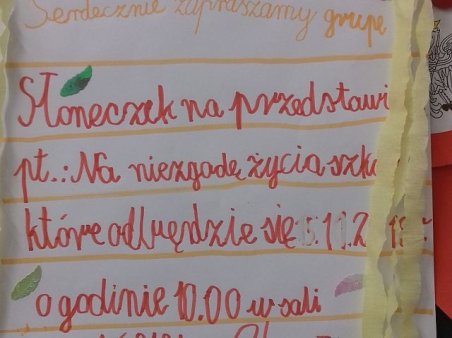 Serdecznie zapraszamy grupę
Słoneczek na przedstawi
pt.: Na niezgodę życia szko
które odbędzie się 5.11.2 18r
o godinie 10.00 w sali